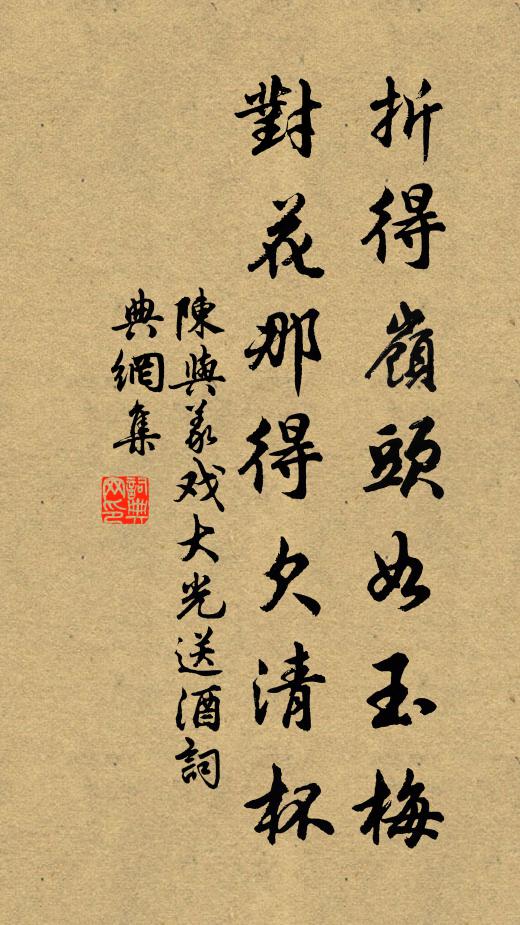 折得嶺頭如玉梅
對花那得欠清杯
陳與義戏大光送酒詞
典網集
詞典网印